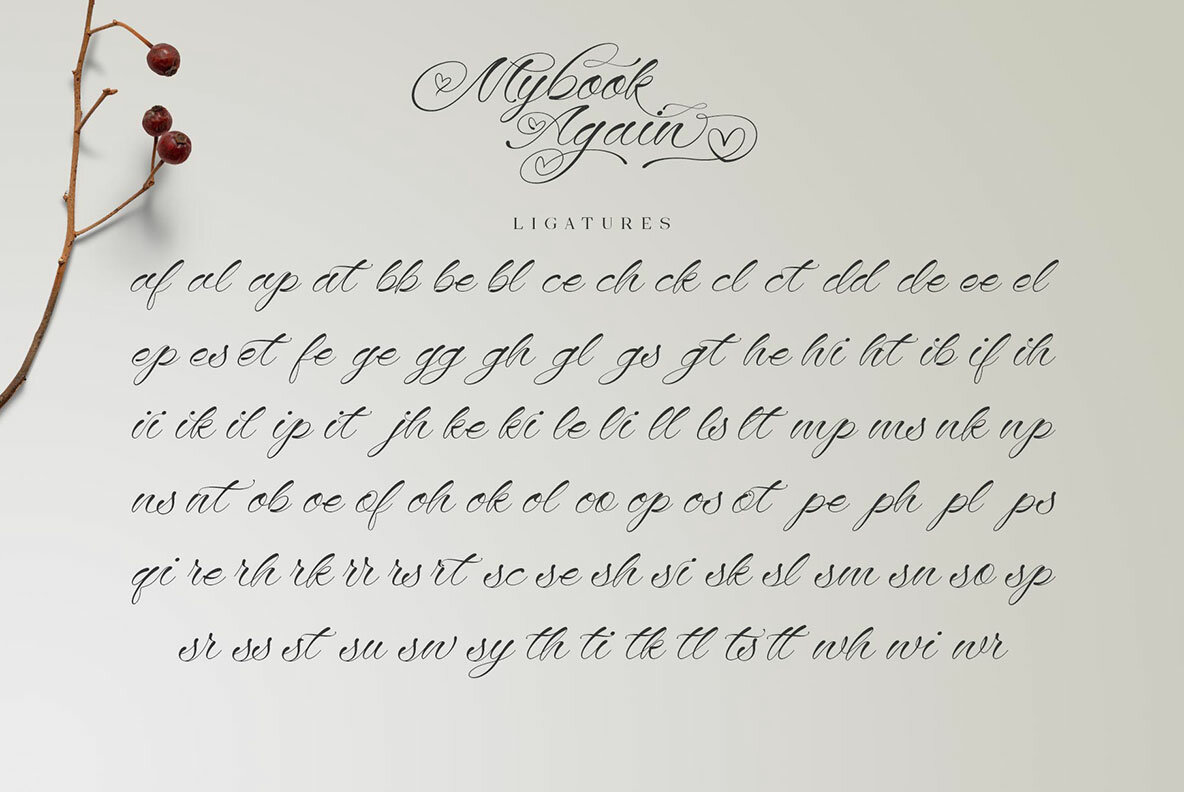 Mybook
Again
LIGATURES
af al ap at bb be bl ce ch ck cl ct dd de ee el
ep es et fe ge gg gh gl gs gt he hi ht ib if ih
ii ik il ip it jh ke ki le li ll ls lt mp ms nk np
ns nt ob oe of oh ok ol oo op os ot pe ph pl ps
qi re rh rk rr rs rt sc se sh si sk sl sm sn so sp
sr ss st su sw sy th ti tk tl ts tt wh wi wr